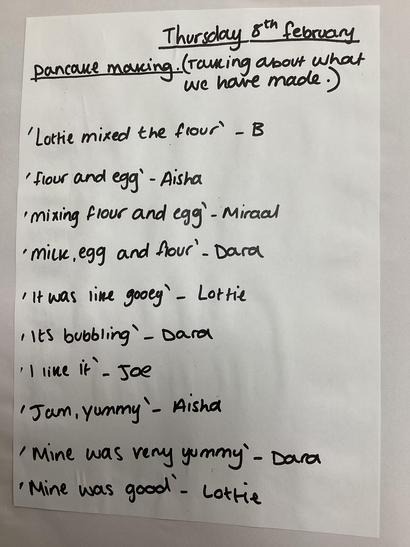 Thursday 8th february
pancake making. (Talking about what
we have made.)
'Lottie mixed the flour' - B
'flour and egg' - Aisha
'mixing flour and egg' - Miraal
'milk, egg and flour' - Dara
'It was like gooey' - Lottie
'Its bubbling' - Dara
'I like it' - Joe
'Jam, yummy' - Aisha
'Mine was very yummy' - Dara
'Mine was good' - Lottie